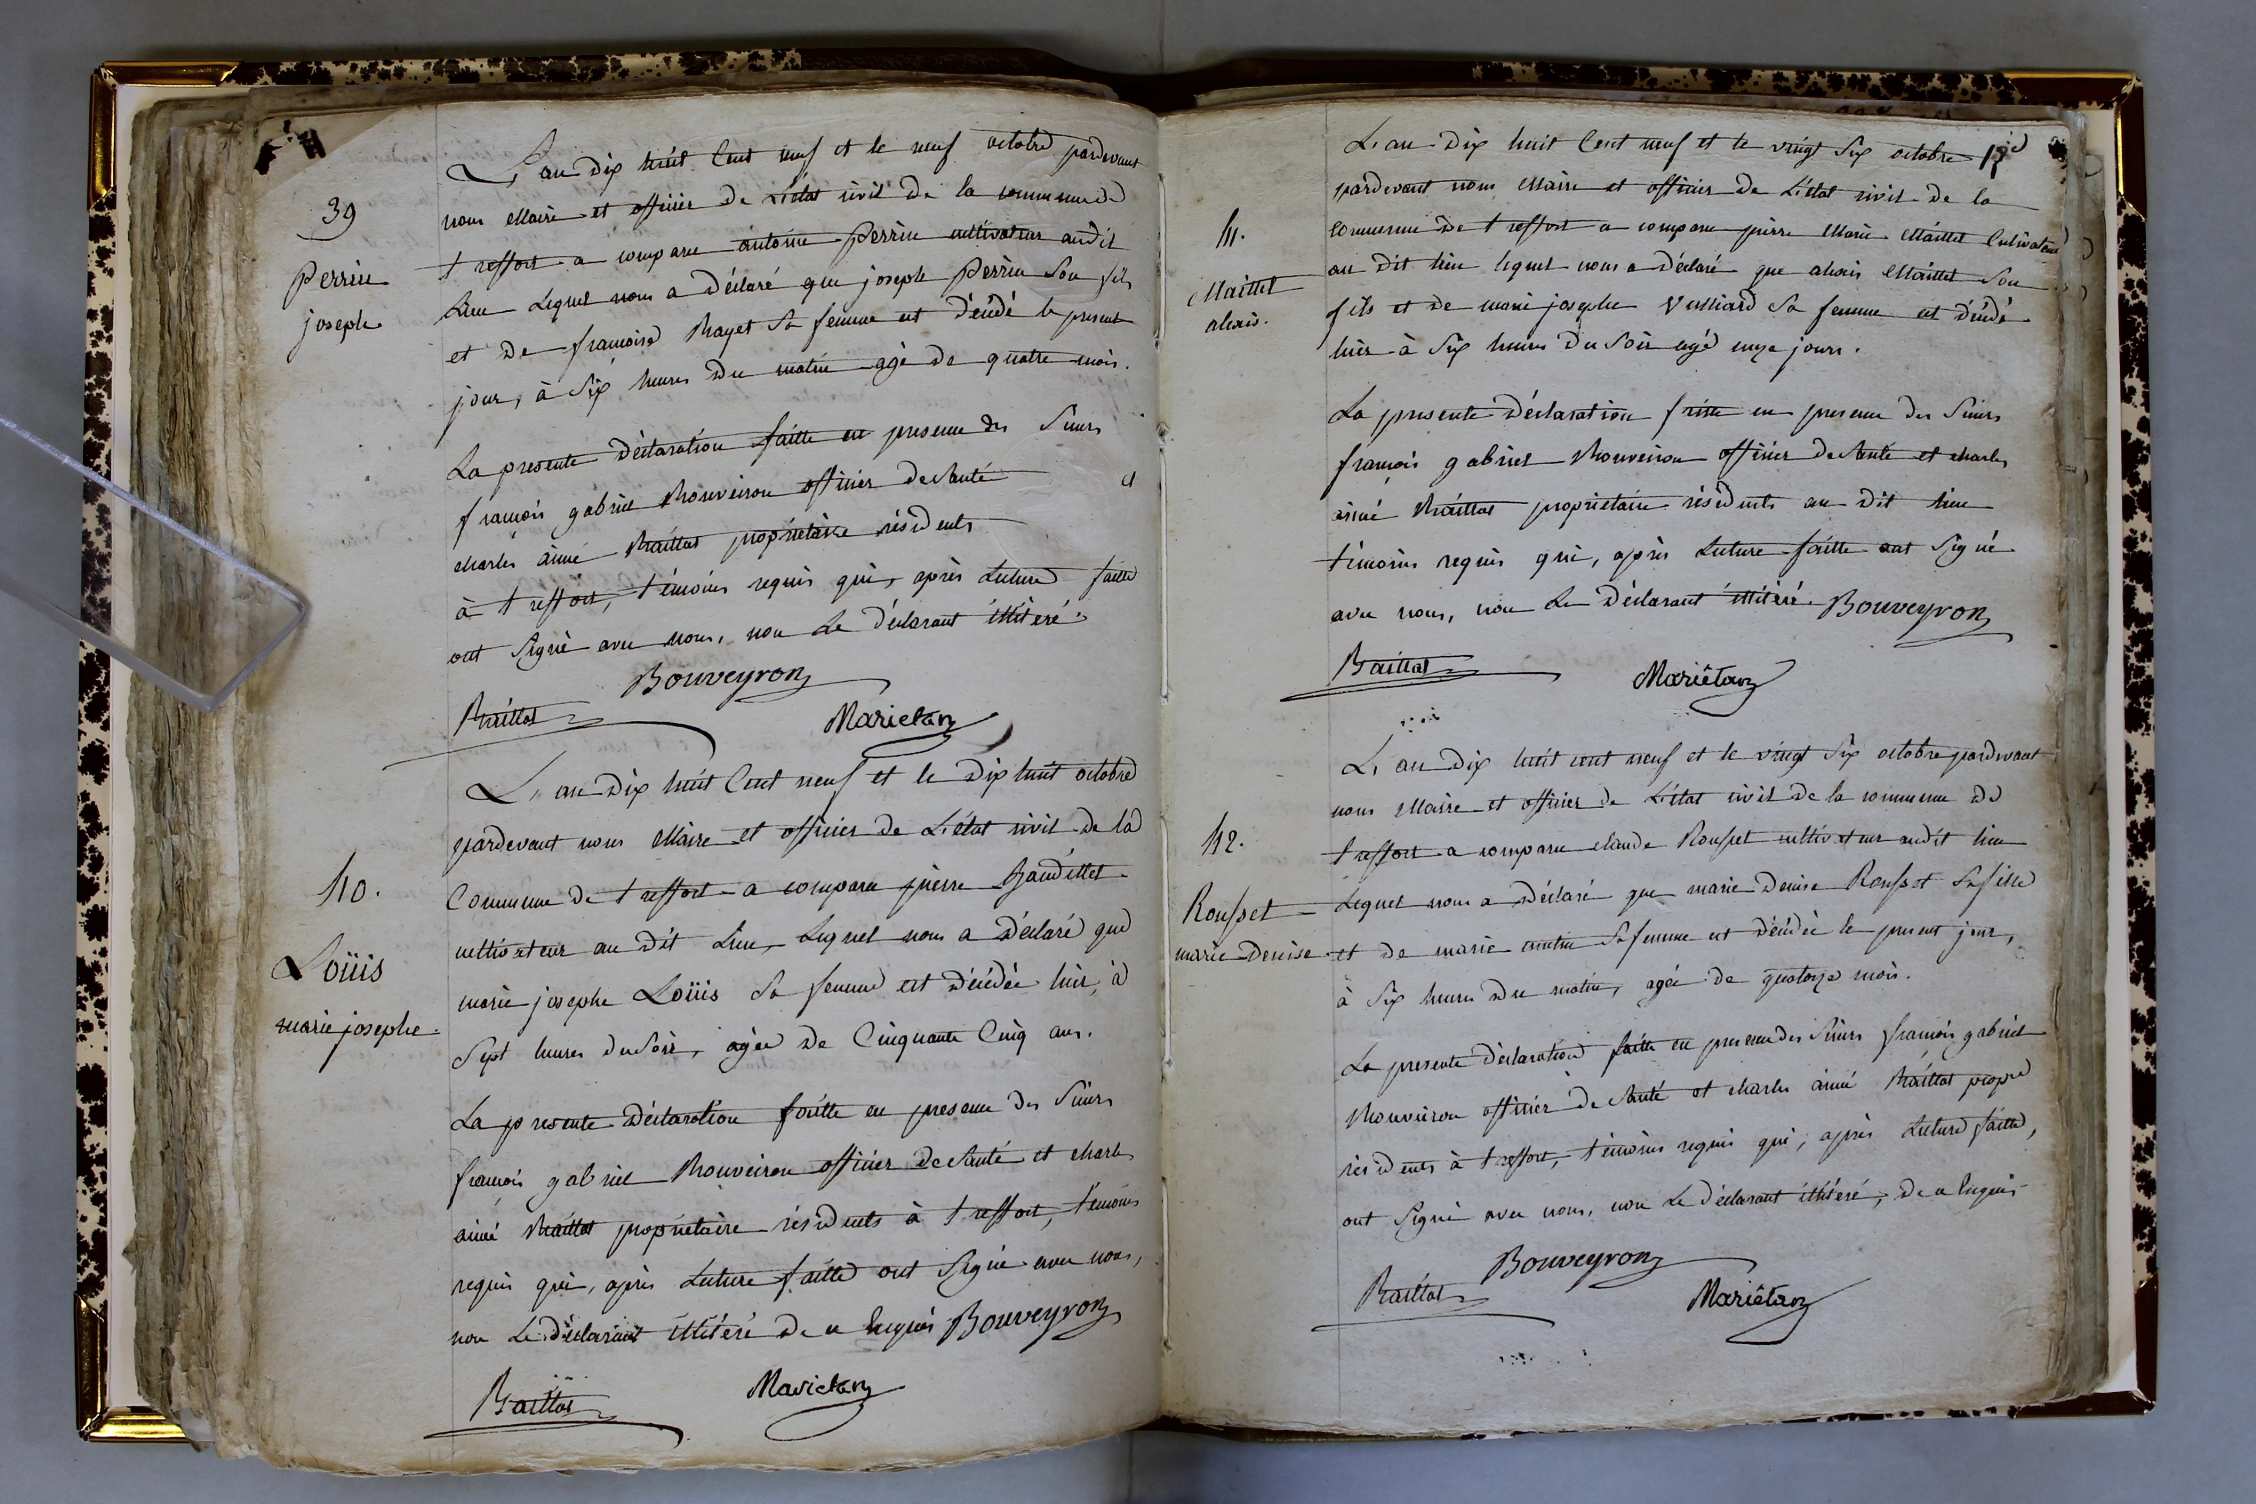 39
Perrin
joseph
L'an dix huit Cent neuf et le neuf octobre pardevant
nous Maire et officier de L'état civil de la commune de
treffort a comparu antoine Perrin cultivateur audit
Lieu Lequel nous a déclaré que joseph Perrin son fils
et de françoise sa femme est décédé le present
jour, à six heures du matin agé de quatre mois.
La presente déclaration faitte en presence des Sieurs
françois gabriel Bouveiron officier de Santé et
charles aimé Baillat propriétaire résidents
à treffort, témoins requis qui, après Lecture faitte
ont signé avec nous, non Le déclarant illitéré
Bouveyron
Baillat
Marietan
40.
Loüis
marie josephe
L'an dix huit Cent neuf et le dix huit octobre
pardevant nous Maire et officier de L'état civil de la
Commune de treffort a comparu pierre Gaudillet
cultivateur au dit Lieu, Lequel nous a déclaré que
marie josephe Loüis sa femme est décédée hier, à
sept heures du soir, agée de Cinquante Cinq ans.
La presente déclaration faitte en presence des Sieurs
françois gabriel Bouveiron officier de Santé et charles
aimé Baillat propriétaire résidents à treffort, témoins
requis qui, après Lecture faitte ont signé avec nous,
non Le déclarant illitéré de ce Enquis Bouveyron
Baillat
Marietan
41.
Maillet
alexis.
L'an dix huit Cent neuf et le vingt six octobre
pardevant nous Maire et officier de L'état civil de la
Commune de treffort a comparu pierre Marie Maillet Cultivateur
au dit lieu lequel nous a déclaré que alexis Maillet son
fils et de marie josephe Vulliard sa femme est décédé
hier à six heures du soir agé onze jours.
La presente déclaration faitte en presence des Sieurs
françois gabriel Bouveiron officier de Santé et charles
aimé Baillat propriétaire résidents au dit lieu
témoins requis qui, après Lecture faitte ont signé
avec nous, non Le déclarant illitéré. Bouveyron
Baillat
Mariétan
42.
Rousset
marie denise
L'an dix huit cent neuf et le vingt six octobre pardevant
nous Maire et officier de L'état civil de la commune de
treffort a comparu claude Rousset cultivateur audit lieu
Lequel nous a déclaré que marie denise Rousset sa fille
et de marie sa femme est décédée le present jour,
à six heures du matin, agée de quatorze mois.
La presente déclaration faitte en presence des Sieurs françois gabriel
Bouveiron officier de Santé et charles aimé Baillat propre
résidents à treffort, témoins requis qui, après Lecture faitte,
ont signé avec nous, non Le déclarant illitéré, de ce Enquis
Bouveyron
Baillat
Mariétan